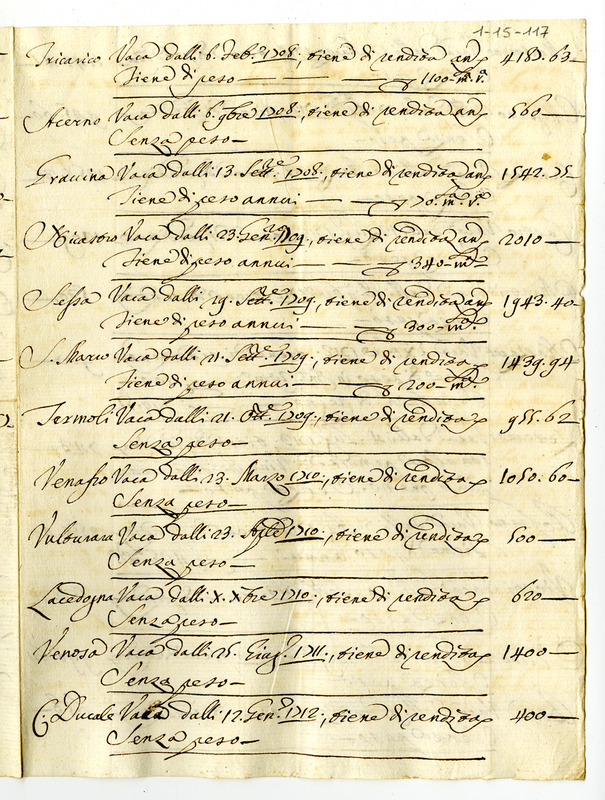 1-15-117
Tricarico Vaca dalli 6. Feb.º 1708., tiene di rendita an. 418.63
Tiene di peso 1100-m.ta v.ª
Acerno Vaca dalli 6. 9bre 1708., tiene di rendita an. 560
Senza peso
Gravina Vaca dalli 13. Sett.e 1708., tiene di rendita an. 1542.75
Tiene di peso annui 70. m.ta v.ª
Nicastro Vaca dalli 23. Gen.º 1709, tiene di rendita an. 2010
Tiene di peso annui 340-m.ta
Sessa Vaca dalli 29. Sett.e 1709., tiene di rendita an. 1943.40
Tiene di peso annui 300-m.ta
S. Marco Vaca dalli 21. Sett.e 1709., tiene di rendita 1439.94
Tiene di peso annui 200-m.ta
Termoli Vaca dalli 21. Ott.e 1709., tiene di rendita 955.62
Senza peso
Venafro Vaca dalli 23. Marzo 1710., tiene di rendita 1050.60
Senza peso
Vulturara Vaca dalli 23. Aple 1710., tiene di rendita 500
Senza peso
Lacedogna Vaca dalli X. Xbre 1710., tiene di rendita 620
Senza peso
Venosa Vaca dalli 25. Giug.º 1711., tiene di rendita 1400
Senza peso
C. Ducale Vaca dalli 12. Gen.º 1712., tiene di rendita 400
Senza peso